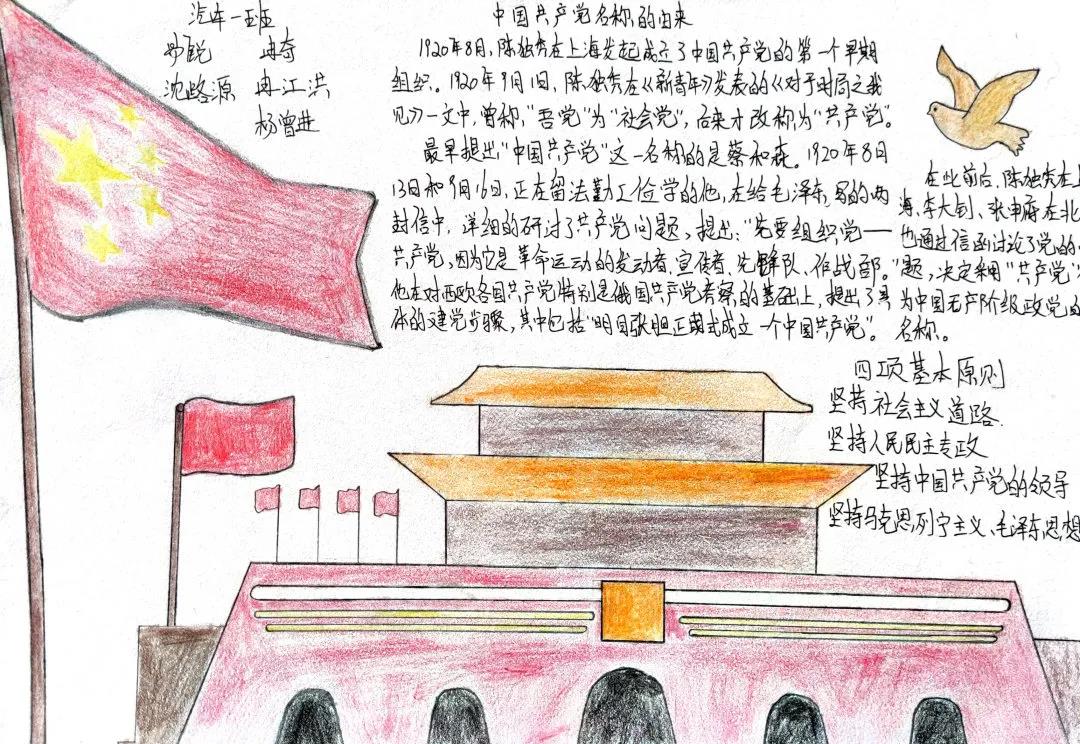 汽车一班
冉奇
沈路源 冉江洪
杨曾进
中国共产党名称的由来
1920年8月,陈独秀在上海发起成立了中国共产党的第一个早期
组织。1920年9月1日,陈独秀在《新青年》发表的《对于时局之我
见》一文中,曾称,"吾党"为"社会党",后来才改称为"共产党"。
最早提出"中国共产党"这一名称的是蔡和森。1920年8日
13日和9月16日,正在留法勤工俭学的他,在给毛泽东写的两
封信中,详细的研讨了共产党问题,提出:"先要组织党一
共产党,因为它是革命运动的发动者,宣传者,先锋队、作战部。"
他在对西欧各国共产党特别是俄国共产党考察的基础上,提出了具
体的建党步骤,其中包括"明目张胆正式成立一个中国共产党"。
在此前后,陈独秀在上
海、李大钊、张申府在北
也通过信函讨论了党的
题,决定采用"共产党"
为中国无产阶级政党的
名称。
四项基本原则
坚持社会主义道路.
坚持人民民主专政
坚持中国共产党的领导
坚持马克思,列宁主义、毛泽东思想